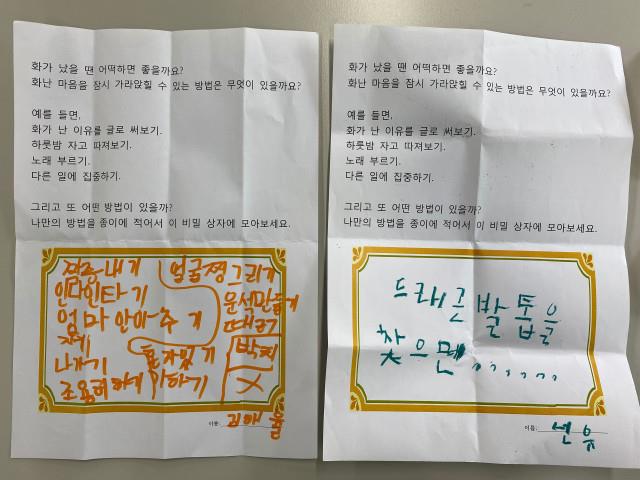 화가 났을 땐 어떡하면 좋을까요?
화난 마음을 잠시 가라앉힐 수 있는 방법은 무엇이 있을까요?
예를 들면,
화가 난 이유를 글로 써보기.
하룻밤 자고 따져보기.
노래 부르기.
다른 일에 집중하기.
그리고 또 어떤 방법이 있을까?
나만의 방법을 종이에 적어서 이 비밀 상자에 모아보세요.
짜증내기
얼굴찡그리기
인라인타기
운석만들기
엄마 안아주기
때리기
자기
혼자있기
박치
나가기
조용히하게
이름:
화가 났을 땐 어떡하면 좋을까요?
화난 마음을 잠시 가라앉힐 수 있는 방법은 무엇이 있을까요?
예를 들면,
화가 난 이유를 글로 써보기.
하룻밤 자고 따져보기.
노래 부르기.
다른 일에 집중하기.
그리고 또 어떤 방법이 있을까?
나만의 방법을 종이에 적어서 이 비밀 상자에 모아보세요.
드래곤발톱을
찾으면,,,,,,,
이름: